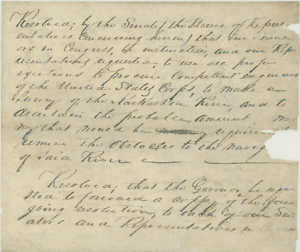 Resolved; by the Senate (the House of Repres
entatives concurring herein) that our Senat
ors in Congress, be instructed, and our Rep
resentatives requested to use all proper
exertions to procure competent engineers
of the United States Corps, to make a
survey of the River, and to
ascertain the probable amount of mo
ney that would be required to
remove the obstacles to the navig
of said River
Resolved; that the Governor be reque
sted to forward a copy of the fore
going resolution, to each of our Sen
ators and Representatives in